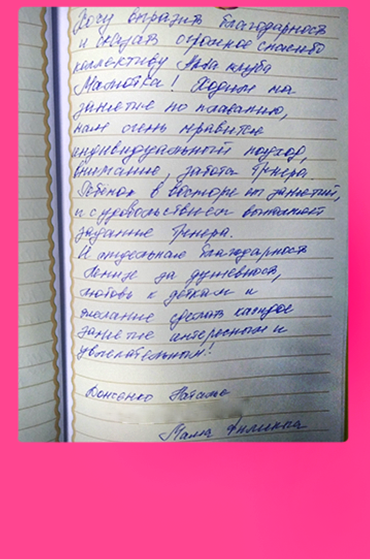 Хочу выразить благодарность
и сказать огромное спасибо
коллективу Аква клуба
Малютка! Ходим на
занятие по плаванию,
нам очень нравится
индивидуальный подход,
внимание, забота тренера.
Ребёнок в восторге от занятий,
и с удовольствием выполняет
задание тренера.
И отдельная благодарность
за душевность,
любовь к деткам и
желание сделать каждое
занятие интересным и
увлекательным!
Мама Филиппа